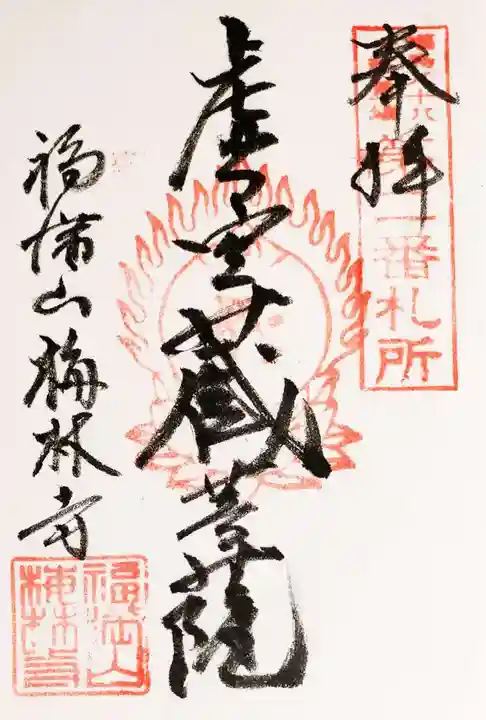 奉拝
番札所
虚空蔵菩薩
福満山梅林寺
福満山
梅林寺